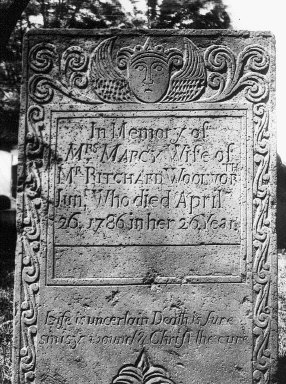 In Memory of
Mrs MARCY Wife of
Mr RITCHARD WOOLWORTH
Junr Who died April
26, 1786 in her 26 Year
Life is uncertain Death is sure
Sin is ye wound & Christ the cure